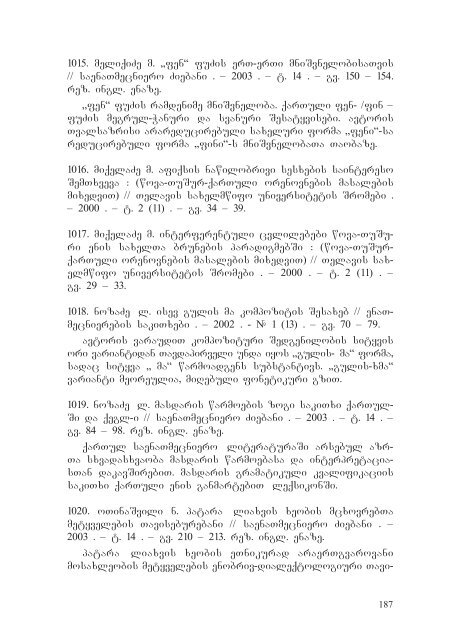 1015. მელიქიძე მ. „ფენ“ ფუძის ერთ-ერთი მნიშვნელობისათვის
// საენათმეცნიერო ძიებანი . – 2003 . – ტ. 14 . – გვ. 150 – 154.
რეზ. ინგლ. ენაზე.
„ფენ“ ფუძის რამდენიმე მნიშვნელობა. ქართული ფენ- /ფინ –
ფუძის მეგრულ-ჭანური და სვანური შესატყვისები. ავტორის
თვალსაზრისი არარედუცირებული სახელური ფორმა „ფენი“-სა
რედუცირებული ფორმა „ფინი“-ს მნიშვნელობათა თაობაზე.
1016. მიქელაძე მ. აფიქსის ნაწილობრივი სესხების საინტერესო
შემთხვევა : (წოვა-თუშურ-ქართული ორენოვნების მასალების
მიხედვით) // თელავის სახელმწიფო უნივერსიტეტის შრომები .
– 2000 . – ტ. 2 (11) . – გვ. 34 – 39.
1017. მიქელაძე მ. ინტერფერენტული ცვლილებები წოვა-თუშუ-
რი ენის სახელთა ბრუნების პარადიგმებში : (წოვა-თუშურ-
ქართული ორენოვნების მასალების მიხედვით) // თელავის სახ-
ელმწიფო უნივერსიტეტის შრომები . – 2000 . – ტ. 2 (11) . –
გვ. 29 – 33.
1018. ნოზაძე ლ. ისევ გულის მა კომპოზიტის შესახებ // ენათ-
მეცნიერების საკითხები . – 2002 . - № 1 (13) . – გვ. 70 – 79.
ავტორის ვარაუდით კომპოზიტური შედგენილობის სიტყვის
ორი ვარიანტიდან თავდაპირველი უნდა იყოს „გულის- მა“ ფორმა,
სადაც სიტყვა „ მა“ წარმოადგენს სუბსტანტივს. „გულის-ხმა“
ვარიანტი მეორეულია, მიღებული ფონეტიკური გზით.
1019. ნოზაძე ლ. მასდარის წარმოების ზოგი საკითხი ქართულ-
ში და ქეგლ-ი // საენათმეცნიერო ძიებანი . – 2003 . – ტ. 14 . –
გვ. 84 – 98. რეზ. ინგლ. ენაზე.
ქართულ საენათმეცნიერო ლიტერატურაში არსებულ აზრ-
თა სხვადასხვაობა მასდარის წარმოებასა და ინტერპრეტაცია-
სთან დაკავშირებით. მასდარის გრამატიკული კვალიფიკაციის
საკითხი ქართული ენის განმარტებით ლექსიკონში.
1020. ოთინაშვილი ნ. პატარა ლიახვის ხეობის მცხოვრებთა
მეტყველების თავისებურებანი // საენათმეცნიერო ძიებანი . –
2003 . – ტ. 14 . – გვ. 210 – 213. რეზ. ინგლ. ენაზე.
პატარა ლიახვის ხეობის ეთნიკურად არაერთგვაროვანი
მოსახლეობის მეტყველების ენობრივ-დიალექტოლოგიური თავი-
187